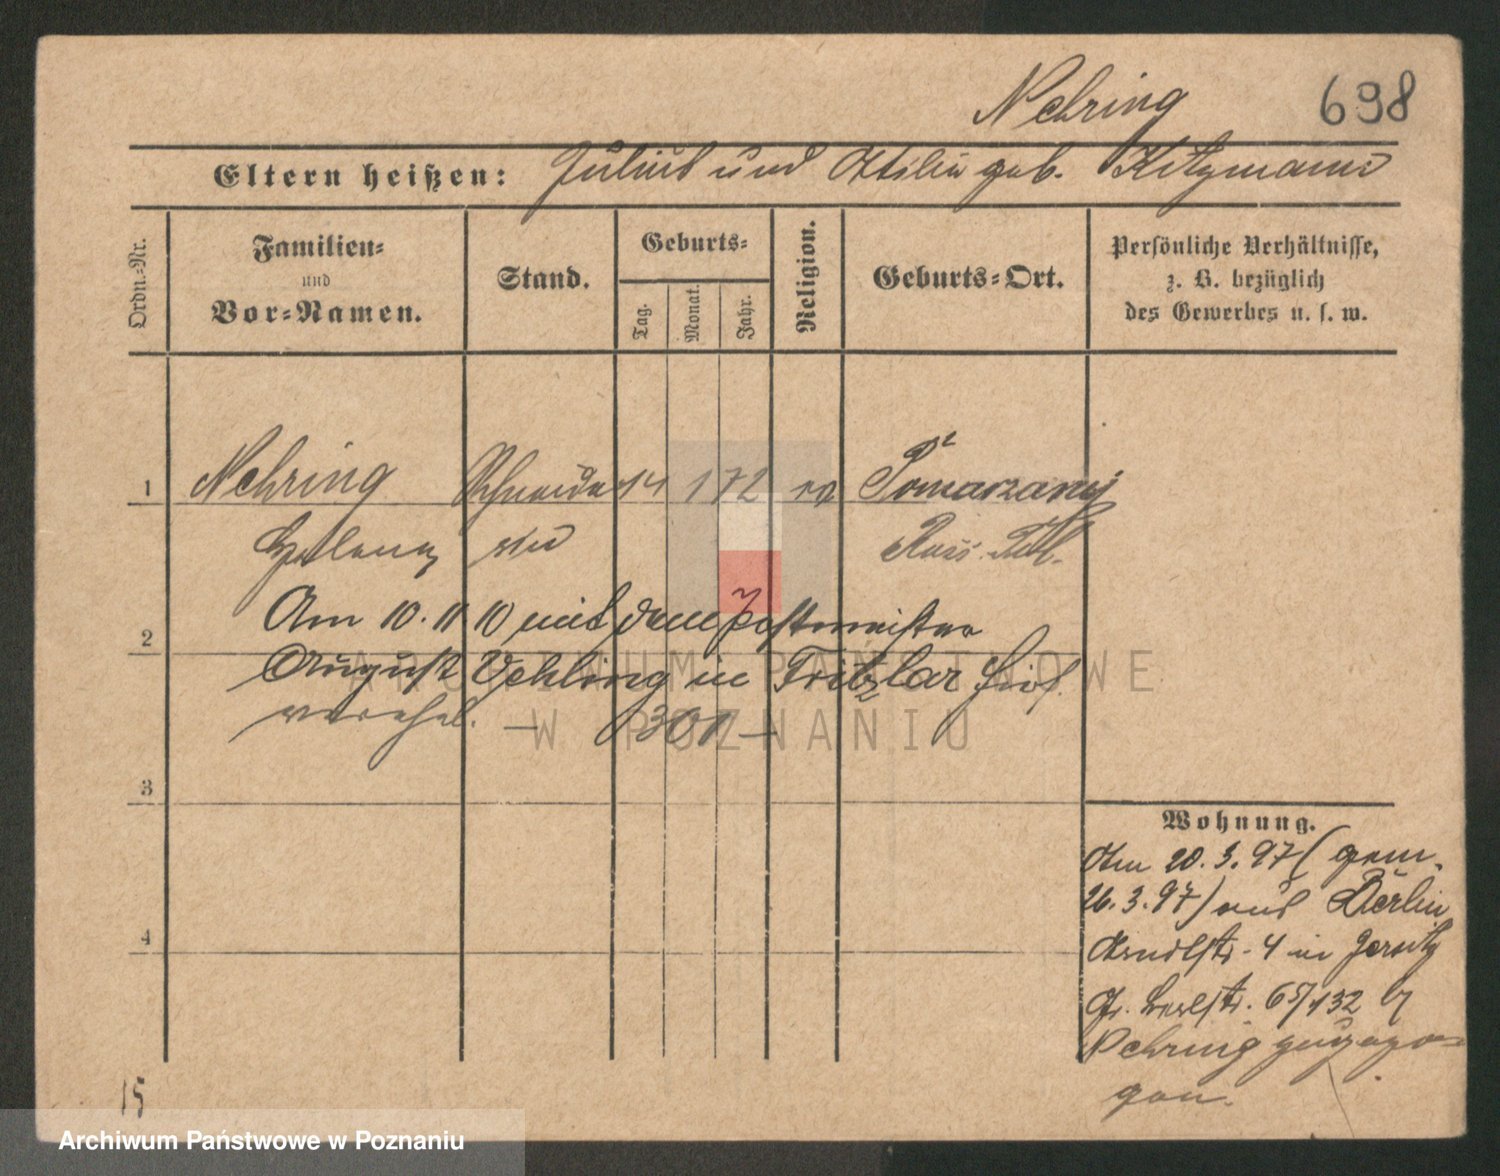 Nehring 698
Eltern heißen: Julius und Otilie geb. Kitzmann
Ordn.-Nr.
Familien-
und
Vor-Namen.
Stand.
Geburts-
Tag.
Monat.
Jahr.
Religion.
Geburts-Ort.
Persönliche Verhältnisse,
z. B. bezüglich
des Gewerbes u. s. w.
1 Nehring Schneide 14 1 72 ev Pomarzany
Helene rin Russ. Pol.
Am 10. 11 10 mit dem Postmeister
2
August Vehling in Fritzlar
verehel. — 301 —
3
4
Wohnung.
Am 20. 3. 97 (gem.
26. 3. 97) aus Berlin
Arndtstr. 4 in Jersitz
Gr. Berlstr. 65/132 b/
Nehring zugezo-
gen.
15
ARCHIWUM PAŃSTWOWE
W POZNANIU
Archiwum Państwowe w Poznaniu